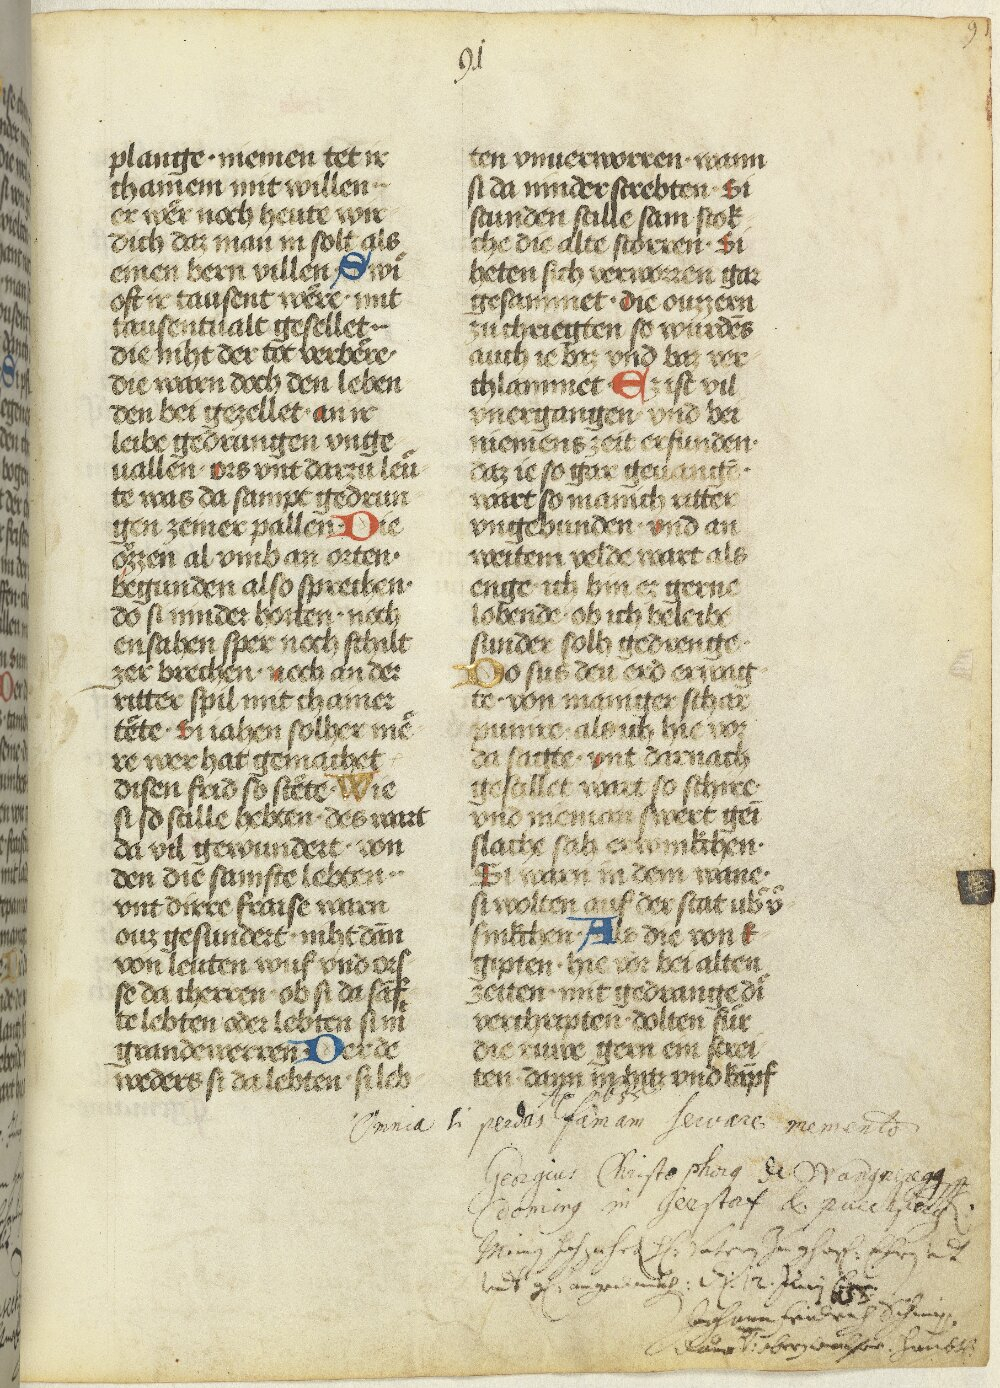 91
91
plantge · niemen tet ir
chainem mit willen ·
er wër noch heute wir
dich daz man in solt als
einen bern villen · Swi
oft ir tausent wëre · mit
tausentualt gesellet ·
die niht der tot verbëre ·
die warn doch den leben
den bei gezellet · an ir
leibe gedrungen vnge
uallen · ors vnt darzu leü
te was da sampt gedrun
gen zeiner pallen · Die
özzen al vmb an orten ·
begunden also sprechen ·
do si minder horten · noch
ensahen sper noch schilt
zer brechen · noch an der
ritter spil mit chainer
tëte · si iahen solher më
re wer hat gemachet
disen frid so stëte · Wie
si so stille hebten · des wart
da vil gewundert · von
den die samfte lebten ·
vnt dirre fraise warn
ouz gesundert · niht dan
von leuten wuf vnd ors
se da cherren · ob si da sanf
te lebten oder lebten si in
grandewerren · Der de
weders si da lebten · si leb
ten vnuerworren · wann
si da minder strebten · Si
stunden stille sam stok
che die alte storren · Si
heten sich verworren gar
gesammet · die ouzzern
zu chriegten so wurdes
auch ie baz vnd baz ver
chlammet · Ez ist vil
vnergangen · vnd bei
niemens zeit erfunden ·
daz ie so gar geuange ·
wart so manich ritter
vngebunden · vnd an
weitem velde wart als
enge · ich bin ez gerne
lobende · ob ich beleibe
sunder solh gedrenge ·
Do sus den erd erwag
te · von maniger schar
punire · als ich hie vor
da sagte · vnt darnach
gestillet wart so schire ·
vnd nieman swert gein
slache sah erwinkchen ·
Si warn in dem wane ·
si wolten auf der stat
sinkchen · Als die von E
gipten · hie vor bei alten
zeiten · mit gedrange di
verchripten · dolten für
die ruwe gern ein strei
ten · dann in hitz vnd kampf
Omnia si perdas famam servare memento
Georgius Christophorus de